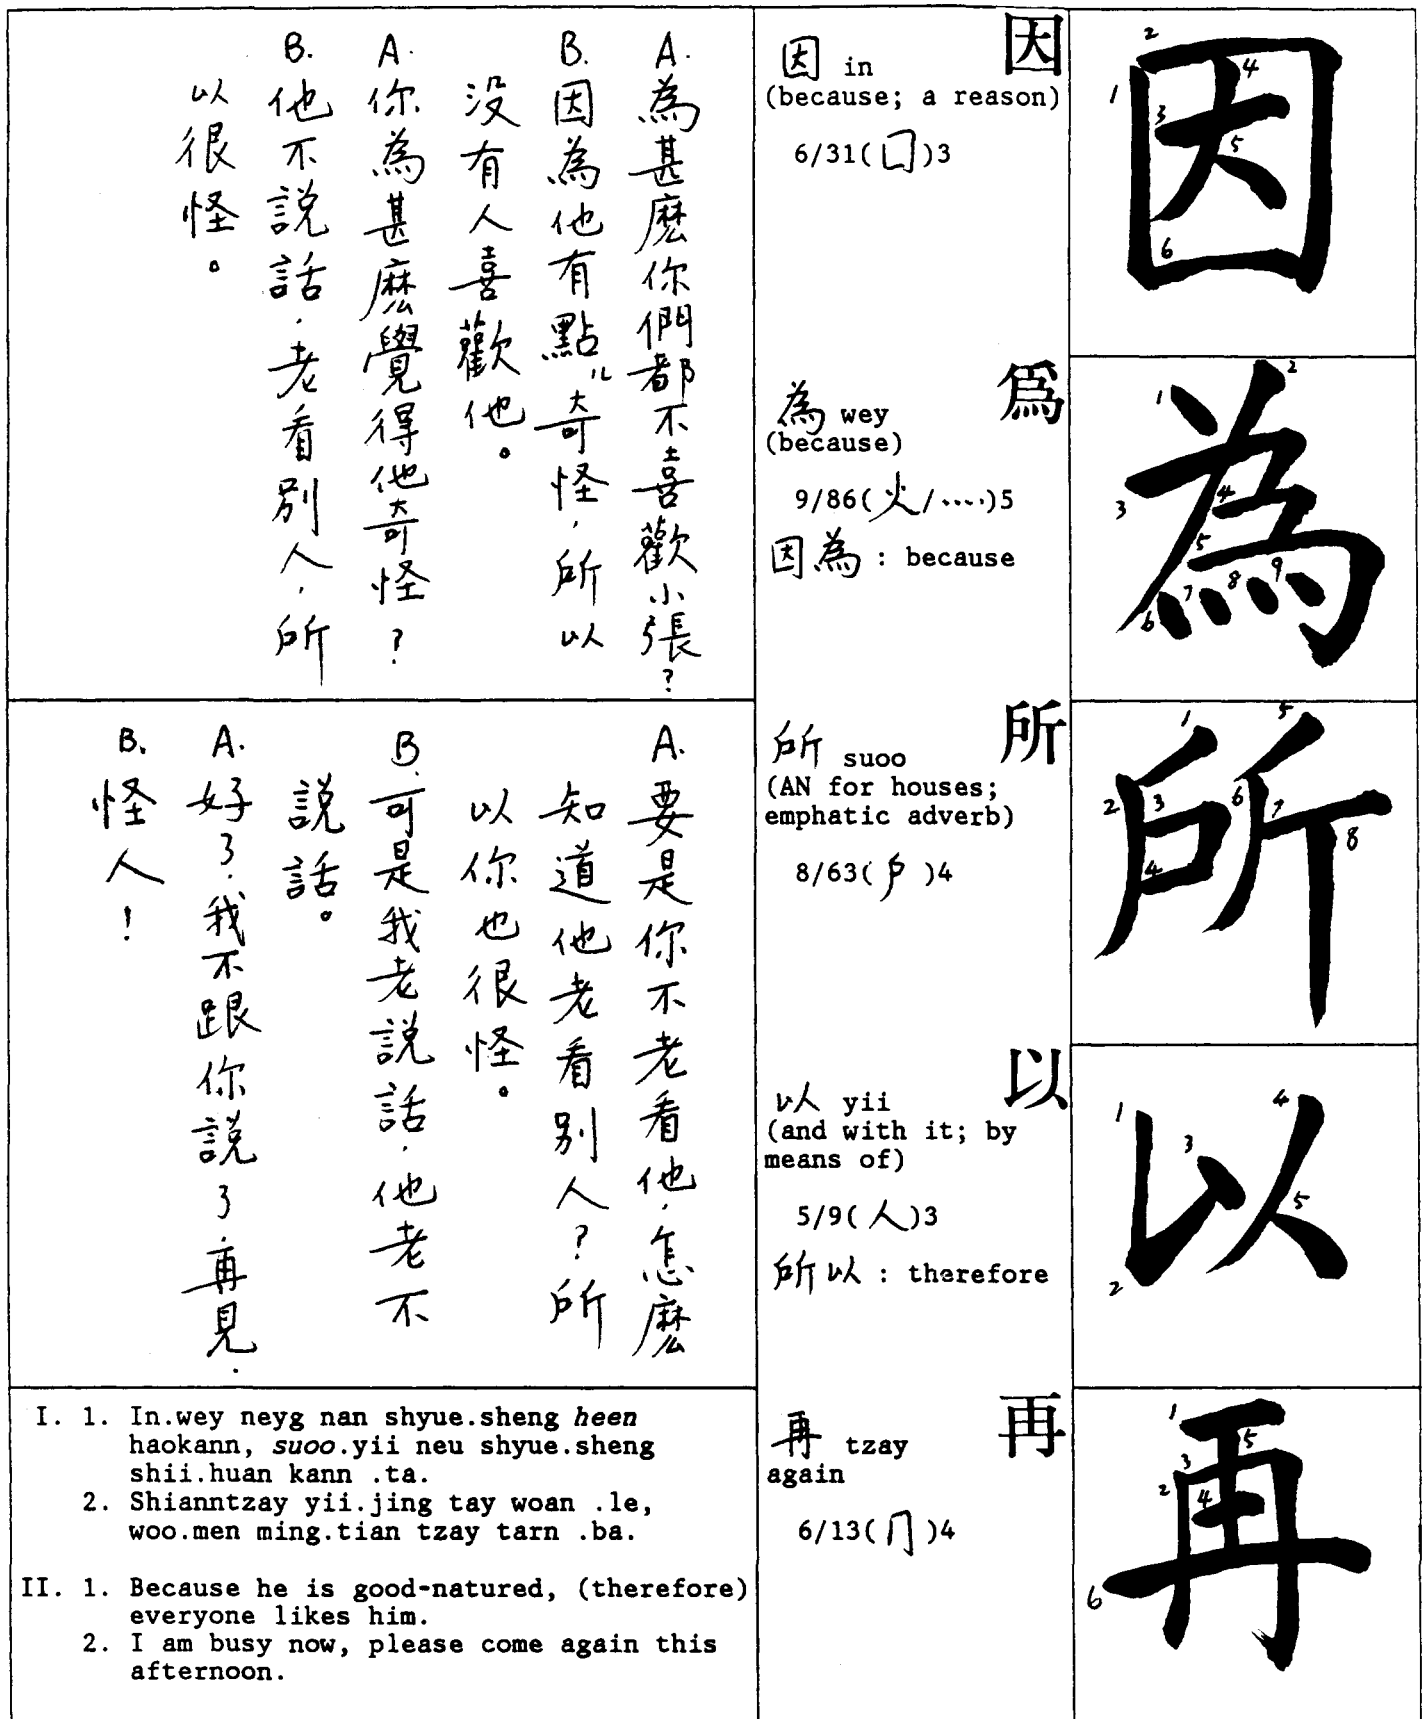 A. 為甚麼你們都不喜歡小張?
B. 因為他有點儿奇怪,所以
没有人喜歡他。
A. 你為甚麼覺得他奇怪?
B. 他不說話,老看別人,所
以很怪。
A. 要是你不老看他,怎麼
知道他老看別人?所
以你也很怪。
B. 可是我老說話,他老不
說話。
A. 好了,我不跟你說了,再見.
B. 怪人!
I. 1. In.wey neyg nan shyue.sheng heen
haokann, suoo.yii neu shyue.sheng
shii.huan kann .ta.
2. Shianntzay yii.jing tay woan .le,
woo.men ming.tian tzay tarn .ba.
II. 1. Because he is good-natured, (therefore)
everyone likes him.
2. I am busy now, please come again this
afternoon.
因 in 因
(because; a reason)
6/31(囗)3
為 wey 爲
(because)
9/86(火/灬)5
因為 : because
所 suoo 所
(AN for houses;
emphatic adverb)
8/63(戶)4
以 yii 以
(and with it; by
means of)
5/9(人)3
所以 : therefore
再 tzay 再
again
6/13(冂)4
因
1 2 3 4 5 6
為
1 2 3 4 5 6 7 8 9
所
1 2 3 4 5 6 7 8
以
1 2 3 4 5
再
1 2 3 4 5 6